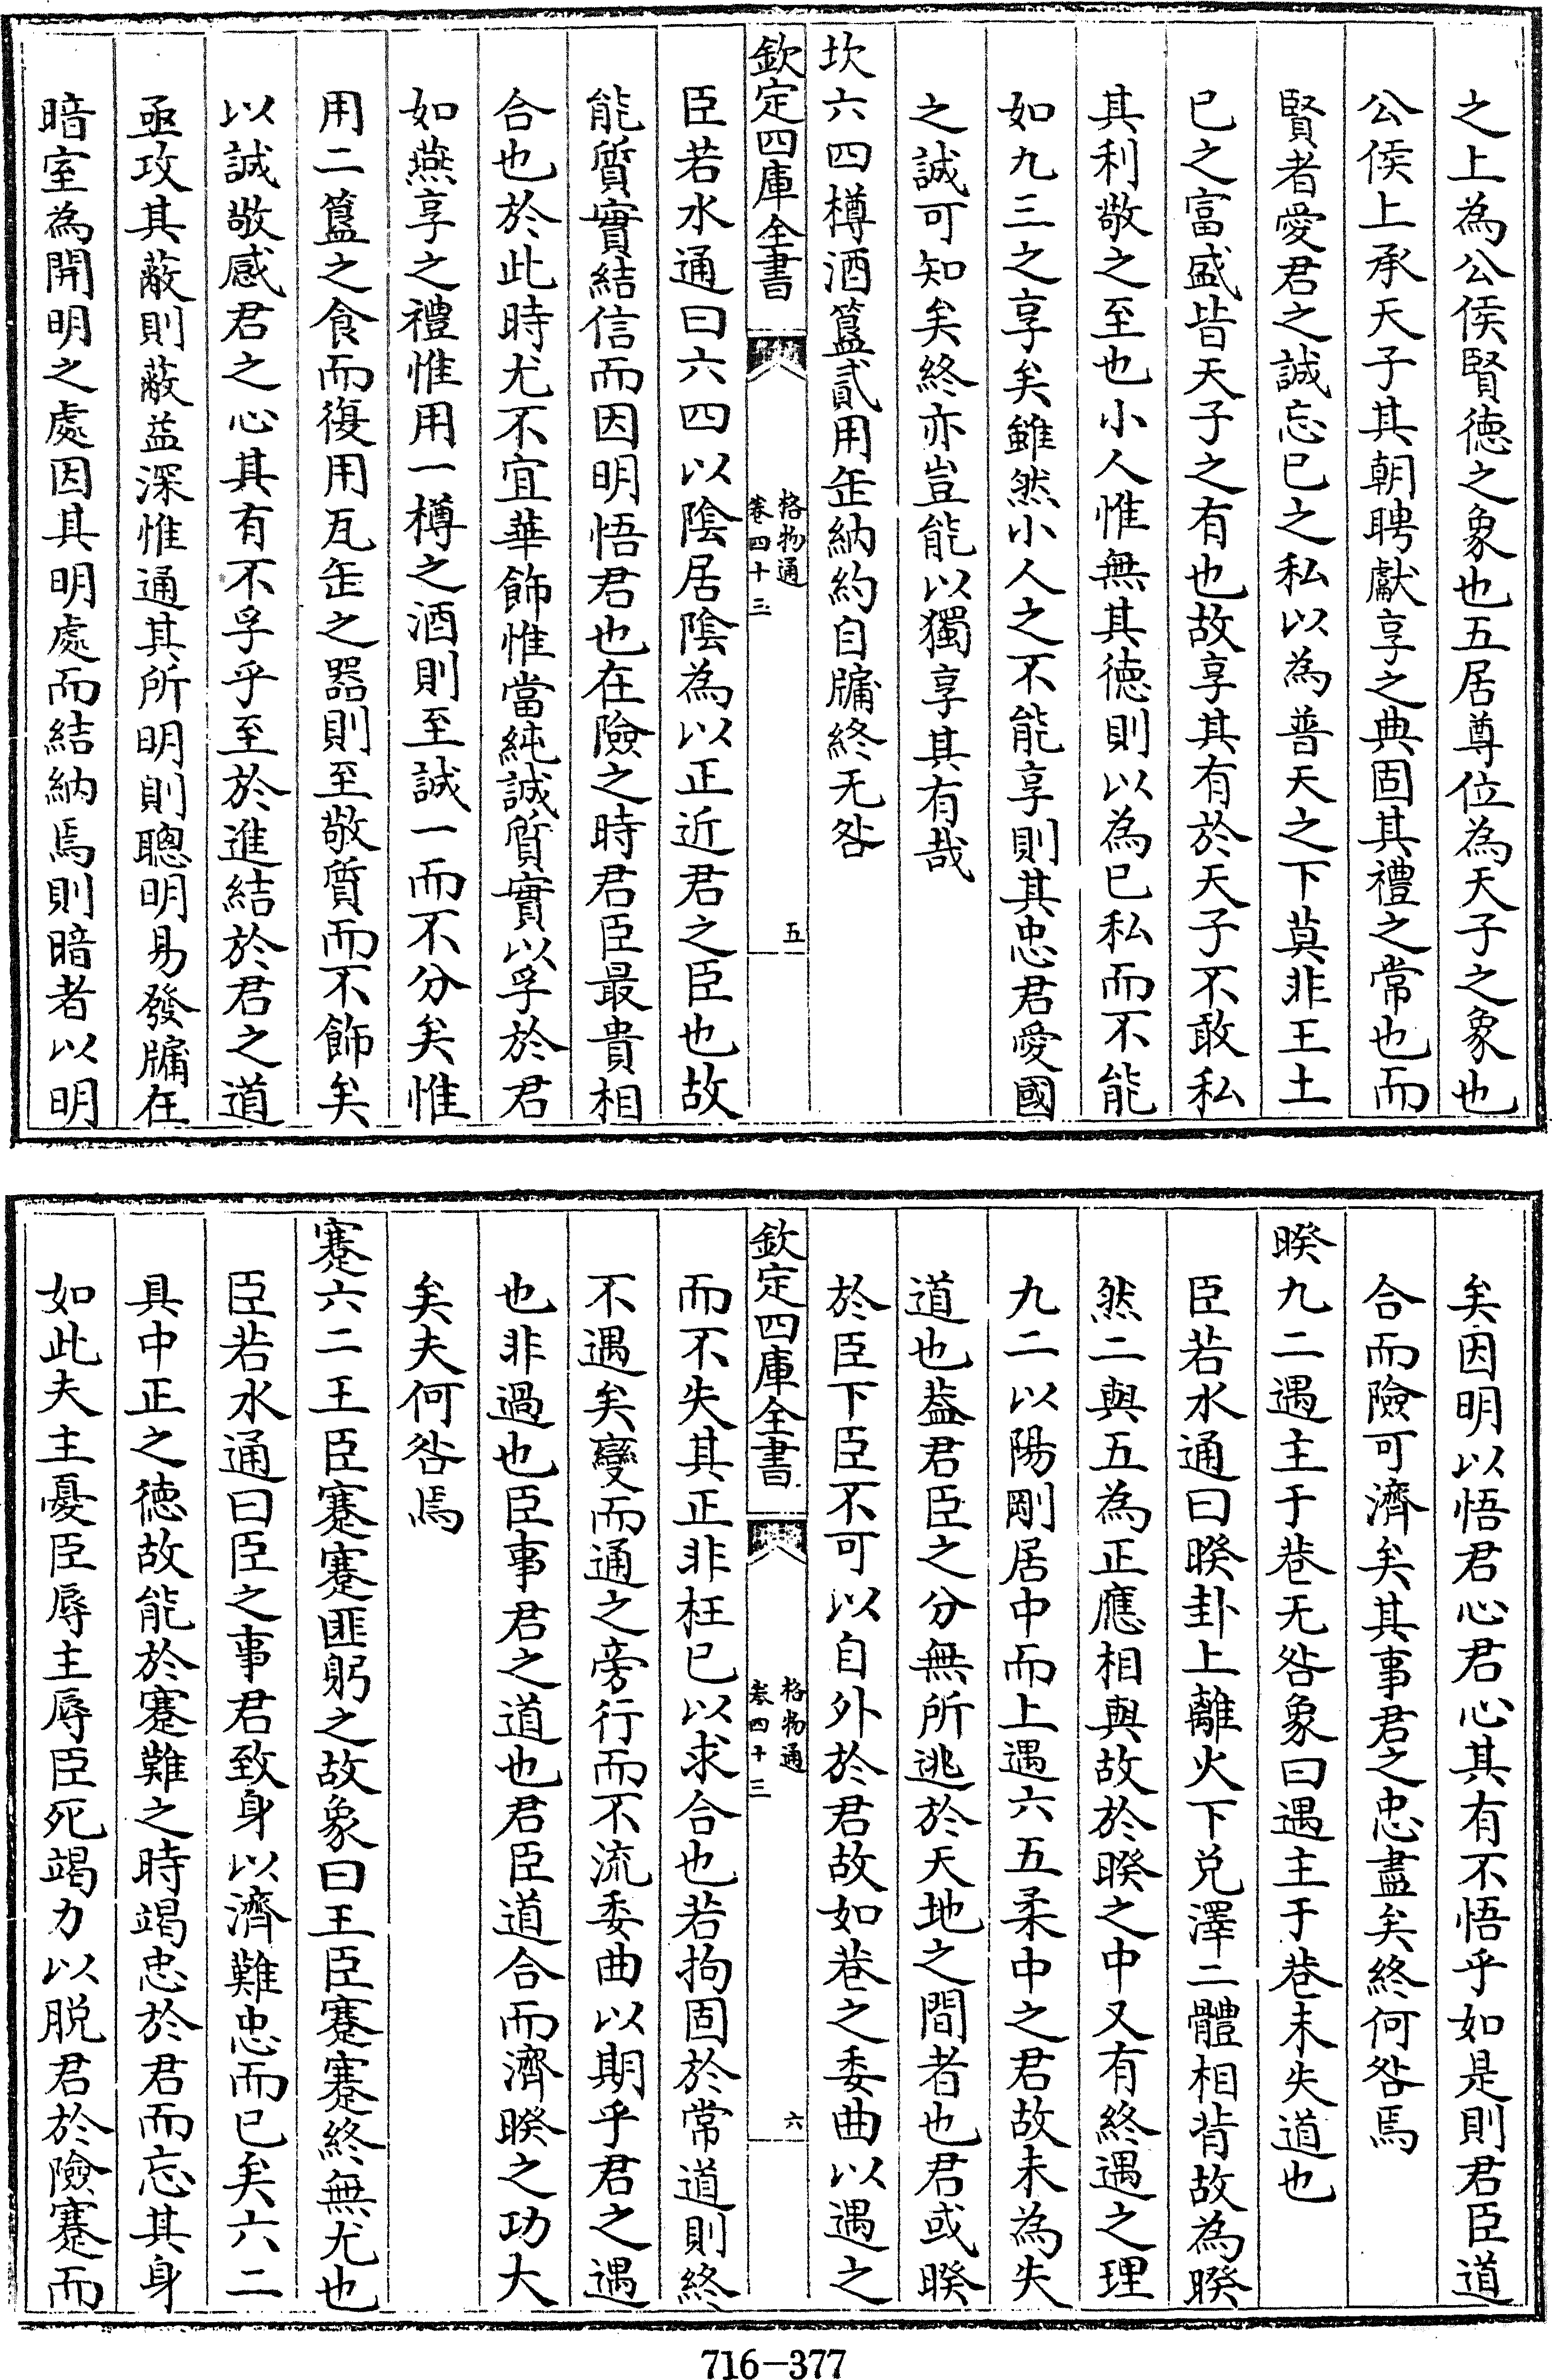 之上為公侯賢徳之象也五居尊位為天子之象也
公侯上承天子其朝聘獻享之典固其禮之常也而
賢者愛君之誠忘已之私以為普天之下莫非王土
已之富盛皆天子之有也故享其有於天子不敢私
其利敬之至也小人惟無其徳則以為已私而不能
如九三之享矣雖然小人之不能享則其忠君愛國
之誠可知矣終亦豈能以獨享其有哉
坎六四樽酒簋貳用缶納約自牖終无咎
欽定四庫全書
格物通
卷四十三
五
臣若水通曰六四以陰居陰為以正近君之臣也故
能質實結信而因明悟君也在險之時君臣最貴相
合也於此時尤不宜華飾惟當純誠質實以孚於君
如燕享之禮惟用一樽之酒則至誠一而不分矣惟
用二簋之食而復用瓦缶之器則至敬質而不飾矣
以誠敬感君之心其有不孚乎至於進結於君之道
亟攻其蔽則蔽益深惟通其所明則聰明易發牖在
暗室為開明之處因其明處而結納焉則暗者以明
矣因明以悟君心君心其有不悟乎如是則君臣道
合而險可濟矣其事君之忠盡矣終何咎焉
睽九二遇主于巷无咎象曰遇主于巷未失道也
臣若水通曰睽卦上離火下兑澤二體相背故為睽
然二與五為正應相與故於睽之中又有終遇之理
九二以陽剛居中而上遇六五柔中之君故未為失
道也葢君臣之分無所逃於天地之間者也君或睽
於臣下臣不可以自外於君故如巷之委曲以遇之
欽定四庫全書
格物通
卷四十三
六
而不失其正非枉已以求合也若拘固於常道則終
不遇矣變而通之旁行而不流委曲以期乎君之遇
也非過也臣事君之道也君臣道合而濟睽之功大
矣夫何咎焉
蹇六二王臣蹇蹇匪躬之故象曰王臣蹇蹇終無尤也
臣若水通曰臣之事君致身以濟難忠而已矣六二
具中正之徳故能於蹇難之時竭忠於君而忘其身
如此夫主憂臣辱主辱臣死竭力以脱君於險蹇而
716-377